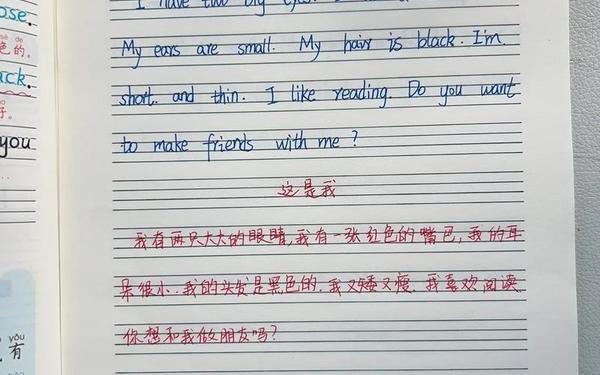 ose.
sè de
色的。
ack.
子。
you
yǒu
有
I have two big eyes.
My ears are small. My hair is black. I'm
short. and thin. I like reading. Do you want
to make friends with me?
这是我
我有两只大大的眼睛,我有一张红色的嘴巴,我的耳
朵很小.我的头发是黑色的.我又矮又瘦.我喜欢阅读.
你想和我做朋友吗?